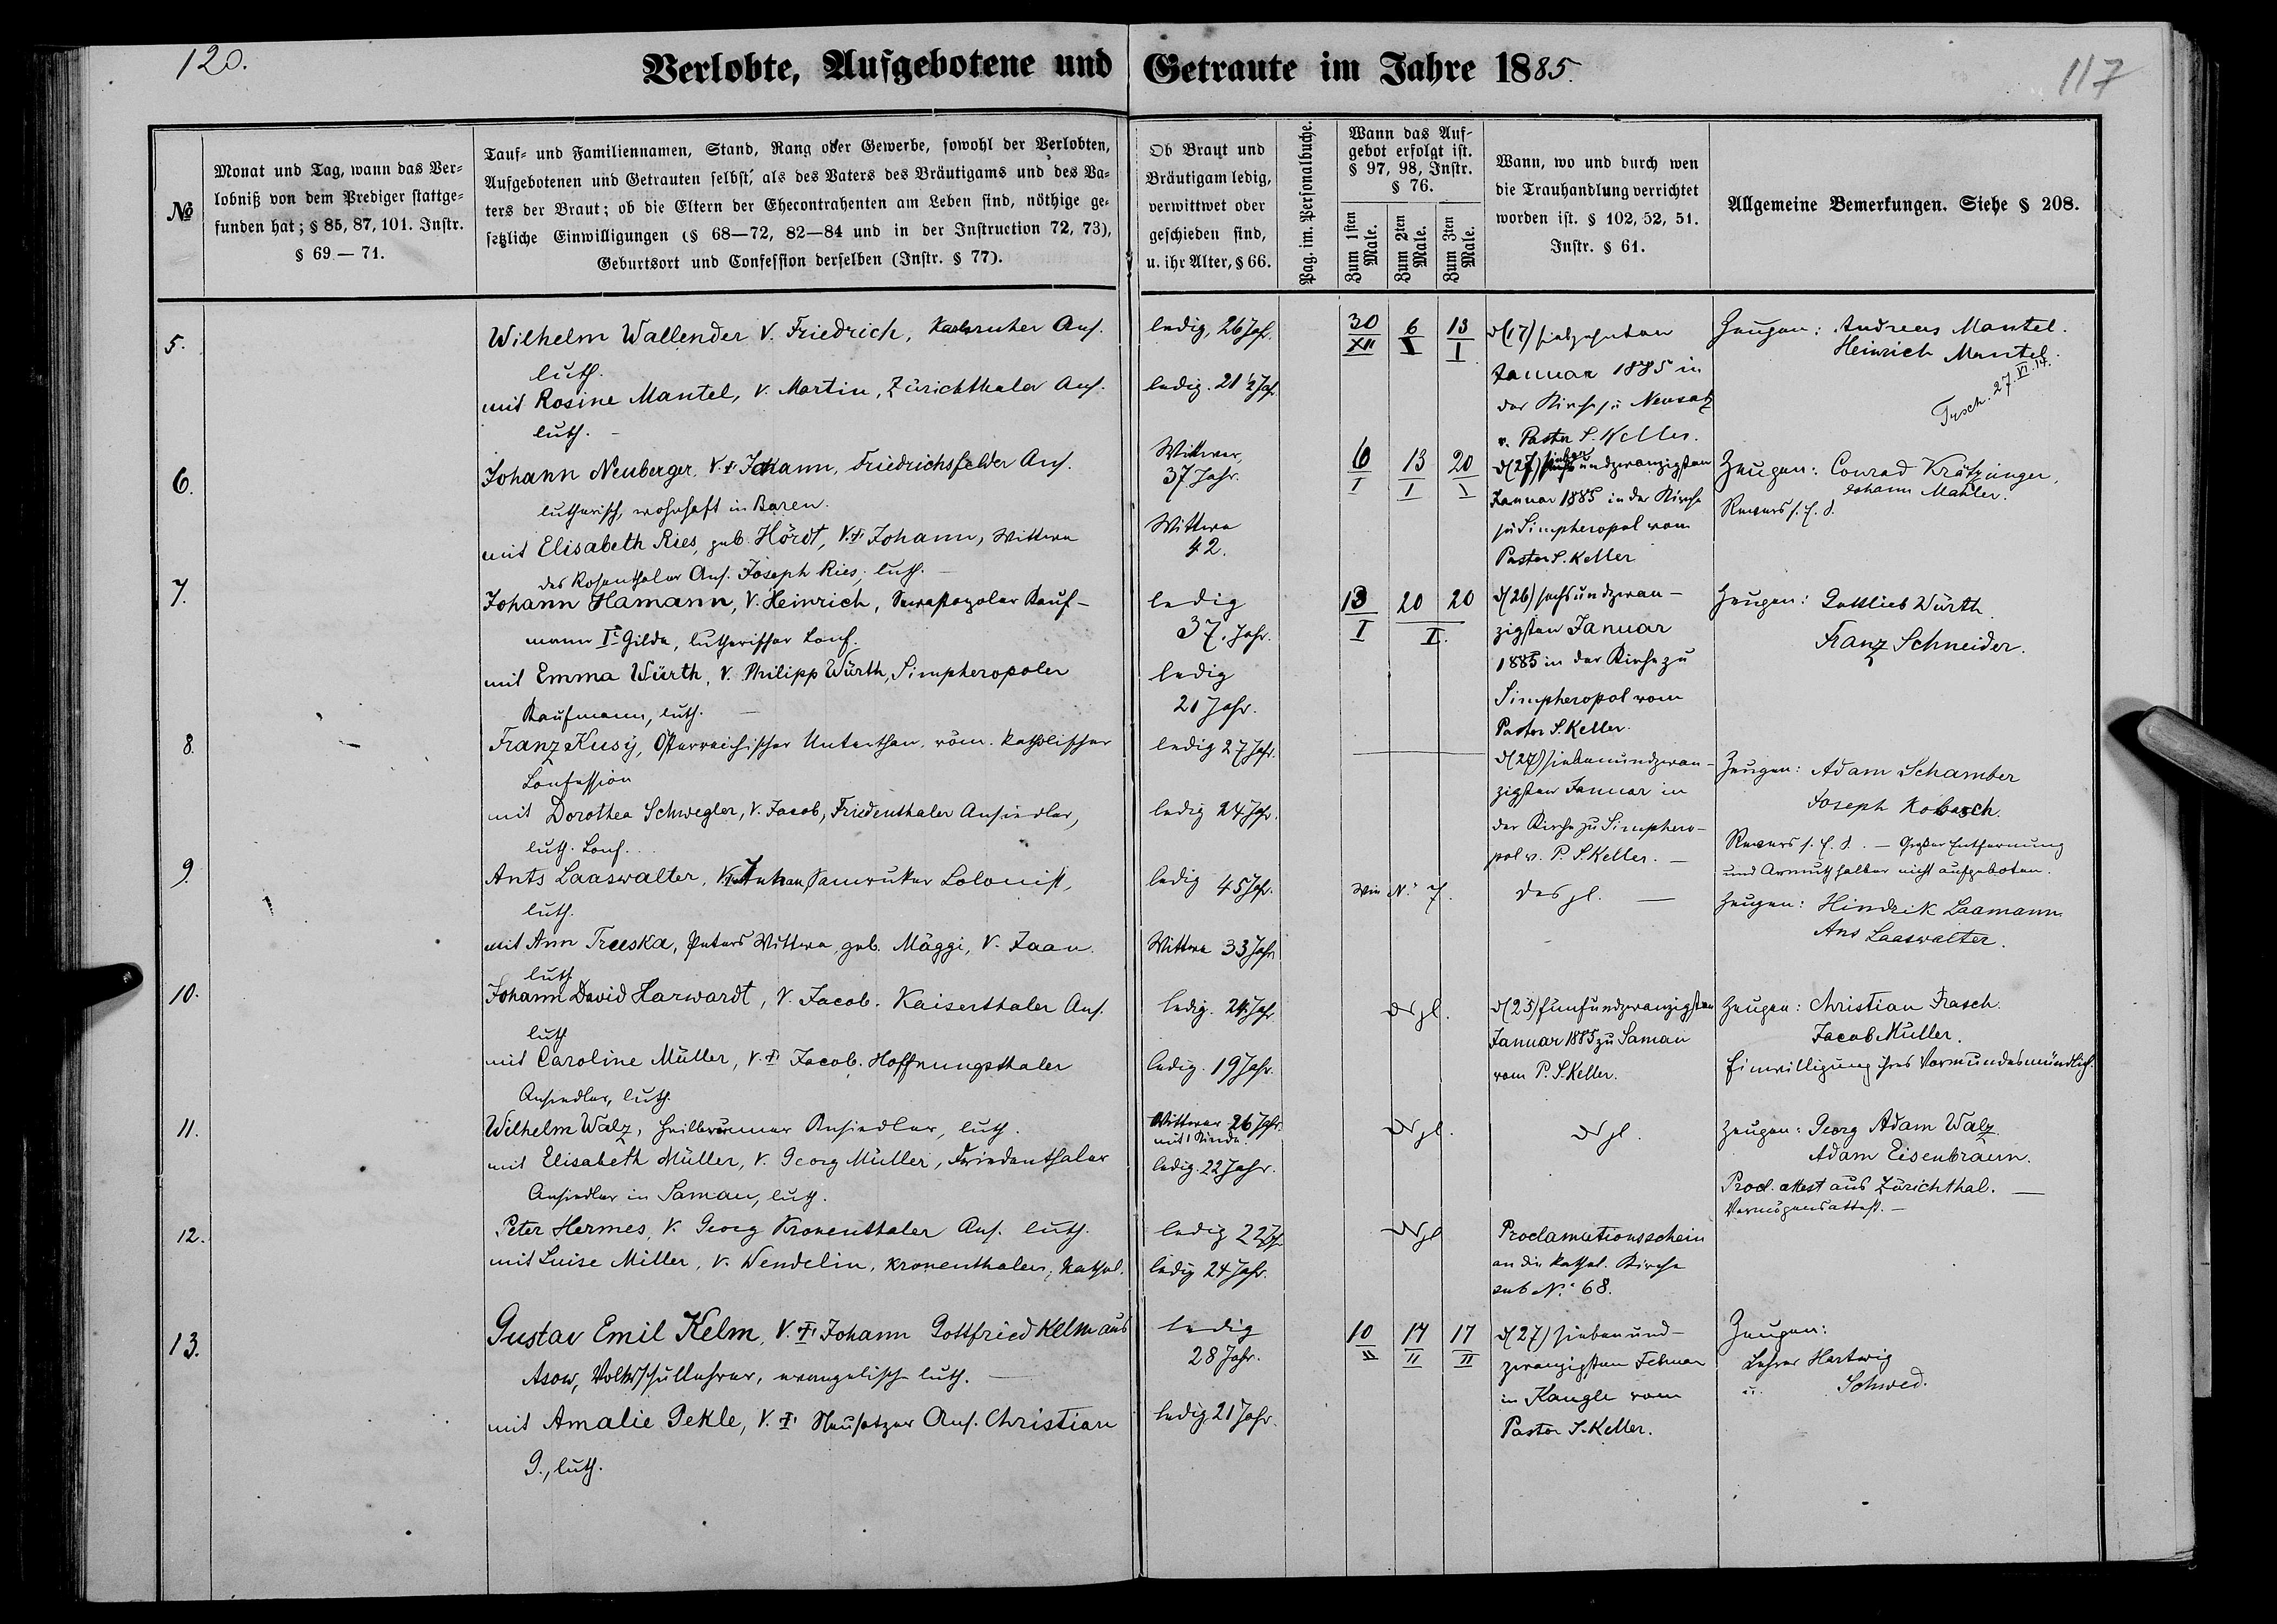 120.
Verlobte, Aufgebotene und Getraute im Jahre 1885.
117
№
Monat und Tag, wann das Ver-
lobniß von dem Prediger stattge-
funden hat; § 85, 87, 101. Instr.
§ 69 — 71.
Tauf- und Familiennamen, Stand, Rang oder Gewerbe, sowohl der Verlobten,
Aufgebotenen und Getrauten selbst, als des Vaters des Bräutigams und des Va-
ters der Braut; ob die Eltern der Ehecontrahenten am Leben sind, nöthige ge-
setzliche Einwilligungen (§ 68—72, 82—84 und in der Instruction 72, 73),
Geburtsort und Confession derselben (Instr. § 77).
Ob Braut und
Bräutigam ledig,
verwittwet oder
geschieden sind,
u. ihr Alter, § 66.
Pag. im. Personalbuche.
Wann das Auf-
gebot erfolgt ist.
§ 97, 98, Instr.
§ 76.
Zum 1sten Male.
Zum 2ten Male.
Zum 3ten Male.
Wann, wo und durch wen
die Trauhandlung verrichtet
worden ist. § 102, 52, 51.
Instr. § 61.
Allgemeine Bemerkungen. Siehe § 208.
5.
Wilhelm Wallender V. Friedrich, Karlsruher Ans.
luth.
mit Rosine Mantel, V. Martin, Zürichthaler Ans.
luth. —
ledig, 26 Jahr.
ledig. 21 1/2 Jahr
30/XII 6/I 13/I
d (17) siebzehnten
Januar 1885 in
der Kirche zu Neusatz
v. Pastor S. Keller.
Zeugen: Andreas Mantel.
Heinrich Mantel.
Trsch. 27. VI. 14.
6.
Johann Neuberger, V. † Johann, Friedrichsfelder Ans.
lutherisch, wohnhaft in Baren.
mit Elisabeth Ries, geb. Hördt, V. † Johann, Wittwe
des Rosenthaler Ans. Joseph Ries, luth. —
Wittwer,
37 Jahr.
Wittwe
42.
6/I 13/I 20/I
d (27) siebenundzwanzigsten
Januar 1885 in der Kirche
zu Simpheropol vom
Pastor S. Keller
Zeugen: Conrad Krätzinger,
Johann Mahler.
Revers s. h. d.
7.
Johann Hamann, V. Heinrich, Sewastopoler Kauf-
mann I. Gilde, lutherischer Conf.
mit Emma Würth, V. Philipp Würth, Simpheropoler
Kaufmann, luth. —
ledig
37. Jahr.
ledig
21 Jahr.
13/I 20 20 I.
d (26) sechsundzwan-
zigsten Januar
1885 in der Kirche zu
Simpheropol vom
Pastor S. Keller.
Zeugen: Gottlieb Würth
Franz Schneider.
8.
Franz Kusy, Österreichischer Unterthan, röm. katholischer
Confession
mit Dorothea Schwegler, V. Jacob, Friedenthaler Ansiedler,
luth. Conf.
ledig 27 Jahr.
ledig 24 Jahr.
d (27) siebenundzwan-
zigsten Januar in
der Kirche zu Simphero-
pol v. P. S. Keller. —
Zeugen: Adam Schamber
Joseph Kobasch.
Revers s. h. d. — Großer Entfernung
und Armuth halber nicht aufgeboten.
9.
Ants Laaswalter, V. † Juhan, Samruker Colonist,
luth.
mit Ann Treeska, Peters Wittwe, geb. Mäggi, V. Jaan.
luth
ledig 45 Jahr.
Wittwe 33 Jahr
Wie N. 7.
desgl. —
Zeugen: Hindrik Laamann
Ans Laaswalter.
10.
Johann David Harwardt, V. Jacob. Kaiserthaler Ans.
luth
mit Caroline Müller, V. † Jacob. Hoffnungsthaler
Ansiedler, luth.
ledig. 24. Jahr
ledig. 19 Jahr.
dsgl.
d (25) fünfundzwanzigsten
Januar 1885 zu Saman
vom P. S. Keller.
Zeugen: Christian Frasch.
Jacob Müller.
Einwilligung ihres Vormundes mündlich.
11.
Wilhelm Walz, Heilbrunner Ansiedler, luth.
mit Elisabeth Müller, V. Georg Müller, Friedenthaler
Ansiedler in Saman, luth.
Wittwer 26 Jahr
mit 1 Kinde.
ledig. 22 Jahr.
dsgl.
dsgl.
Zeugen: Georg Adam Walz.
Adam Eisenbraun.
Procl. attest aus Zürichthal. —
Vermögensattest. —
12.
Peter Hermes, V. Georg Kronenthaler Ans. luth.
mit Luise Miller, V. Wendelin, Kronenthaler, Kathol.
ledig 22 Jh
ledig 24 Jahr.
dsgl
Proclamationsschein
an die kathol. Kirche
sub N. 68.
13.
Gustav Emil Kelm, V. † Johann Gottfried Kelm aus
Asow, Volksschullehrer, evangelisch luth. —
mit Amalie Gekle, V. † Neusatzer Ans. Christian
G., luth.
ledig
28 Jahr.
ledig 21 Jahr.
10/II 14/II 17/II
d (27) siebenund-
zwanzigsten Februar
in Kangle vom
Pastor S. Keller.
Zeugen:
Lehrer Hartwig
u. Schwed.